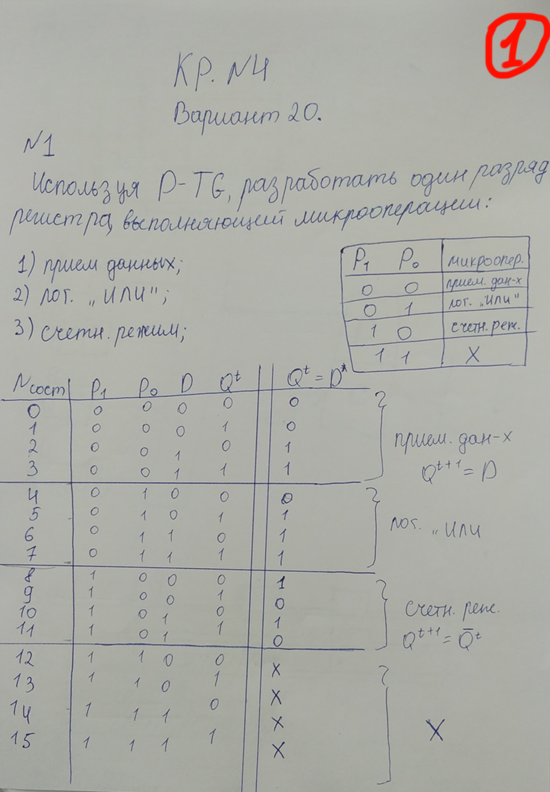 1
КР. N4
Вариант 20.
N1
Используя D-TG, разработать один разряд
регистра, выполняющей микрооперации:
1) прием данных;
2) лог. „ИЛИ";
3) счетн. режим;
P1 P0 микроопер.
0 0 прием. дан-х
0 1 лог. „ИЛИ"
1 0 счетн. реж.
1 1 X
Nсост P1 P0 D Q^t Q^t = D*
0 0 0 0 0 0
1 0 0 0 1 0
2 0 0 1 0 1
3 0 0 1 1 1
прием. дан-х
Q^t+1 = D
4 0 1 0 0 0
5 0 1 0 1 1
6 0 1 1 0 1
7 0 1 1 1 1
лог. „ИЛИ
8 1 0 0 0 1
9 1 0 0 1 0
10 1 0 1 0 1
11 1 0 1 1 0
счетн. реж.
Q^t+1 = Q̄^t
12 1 1 0 0 X
13 1 1 0 1 X
14 1 1 1 0 X
15 1 1 1 1 X
X